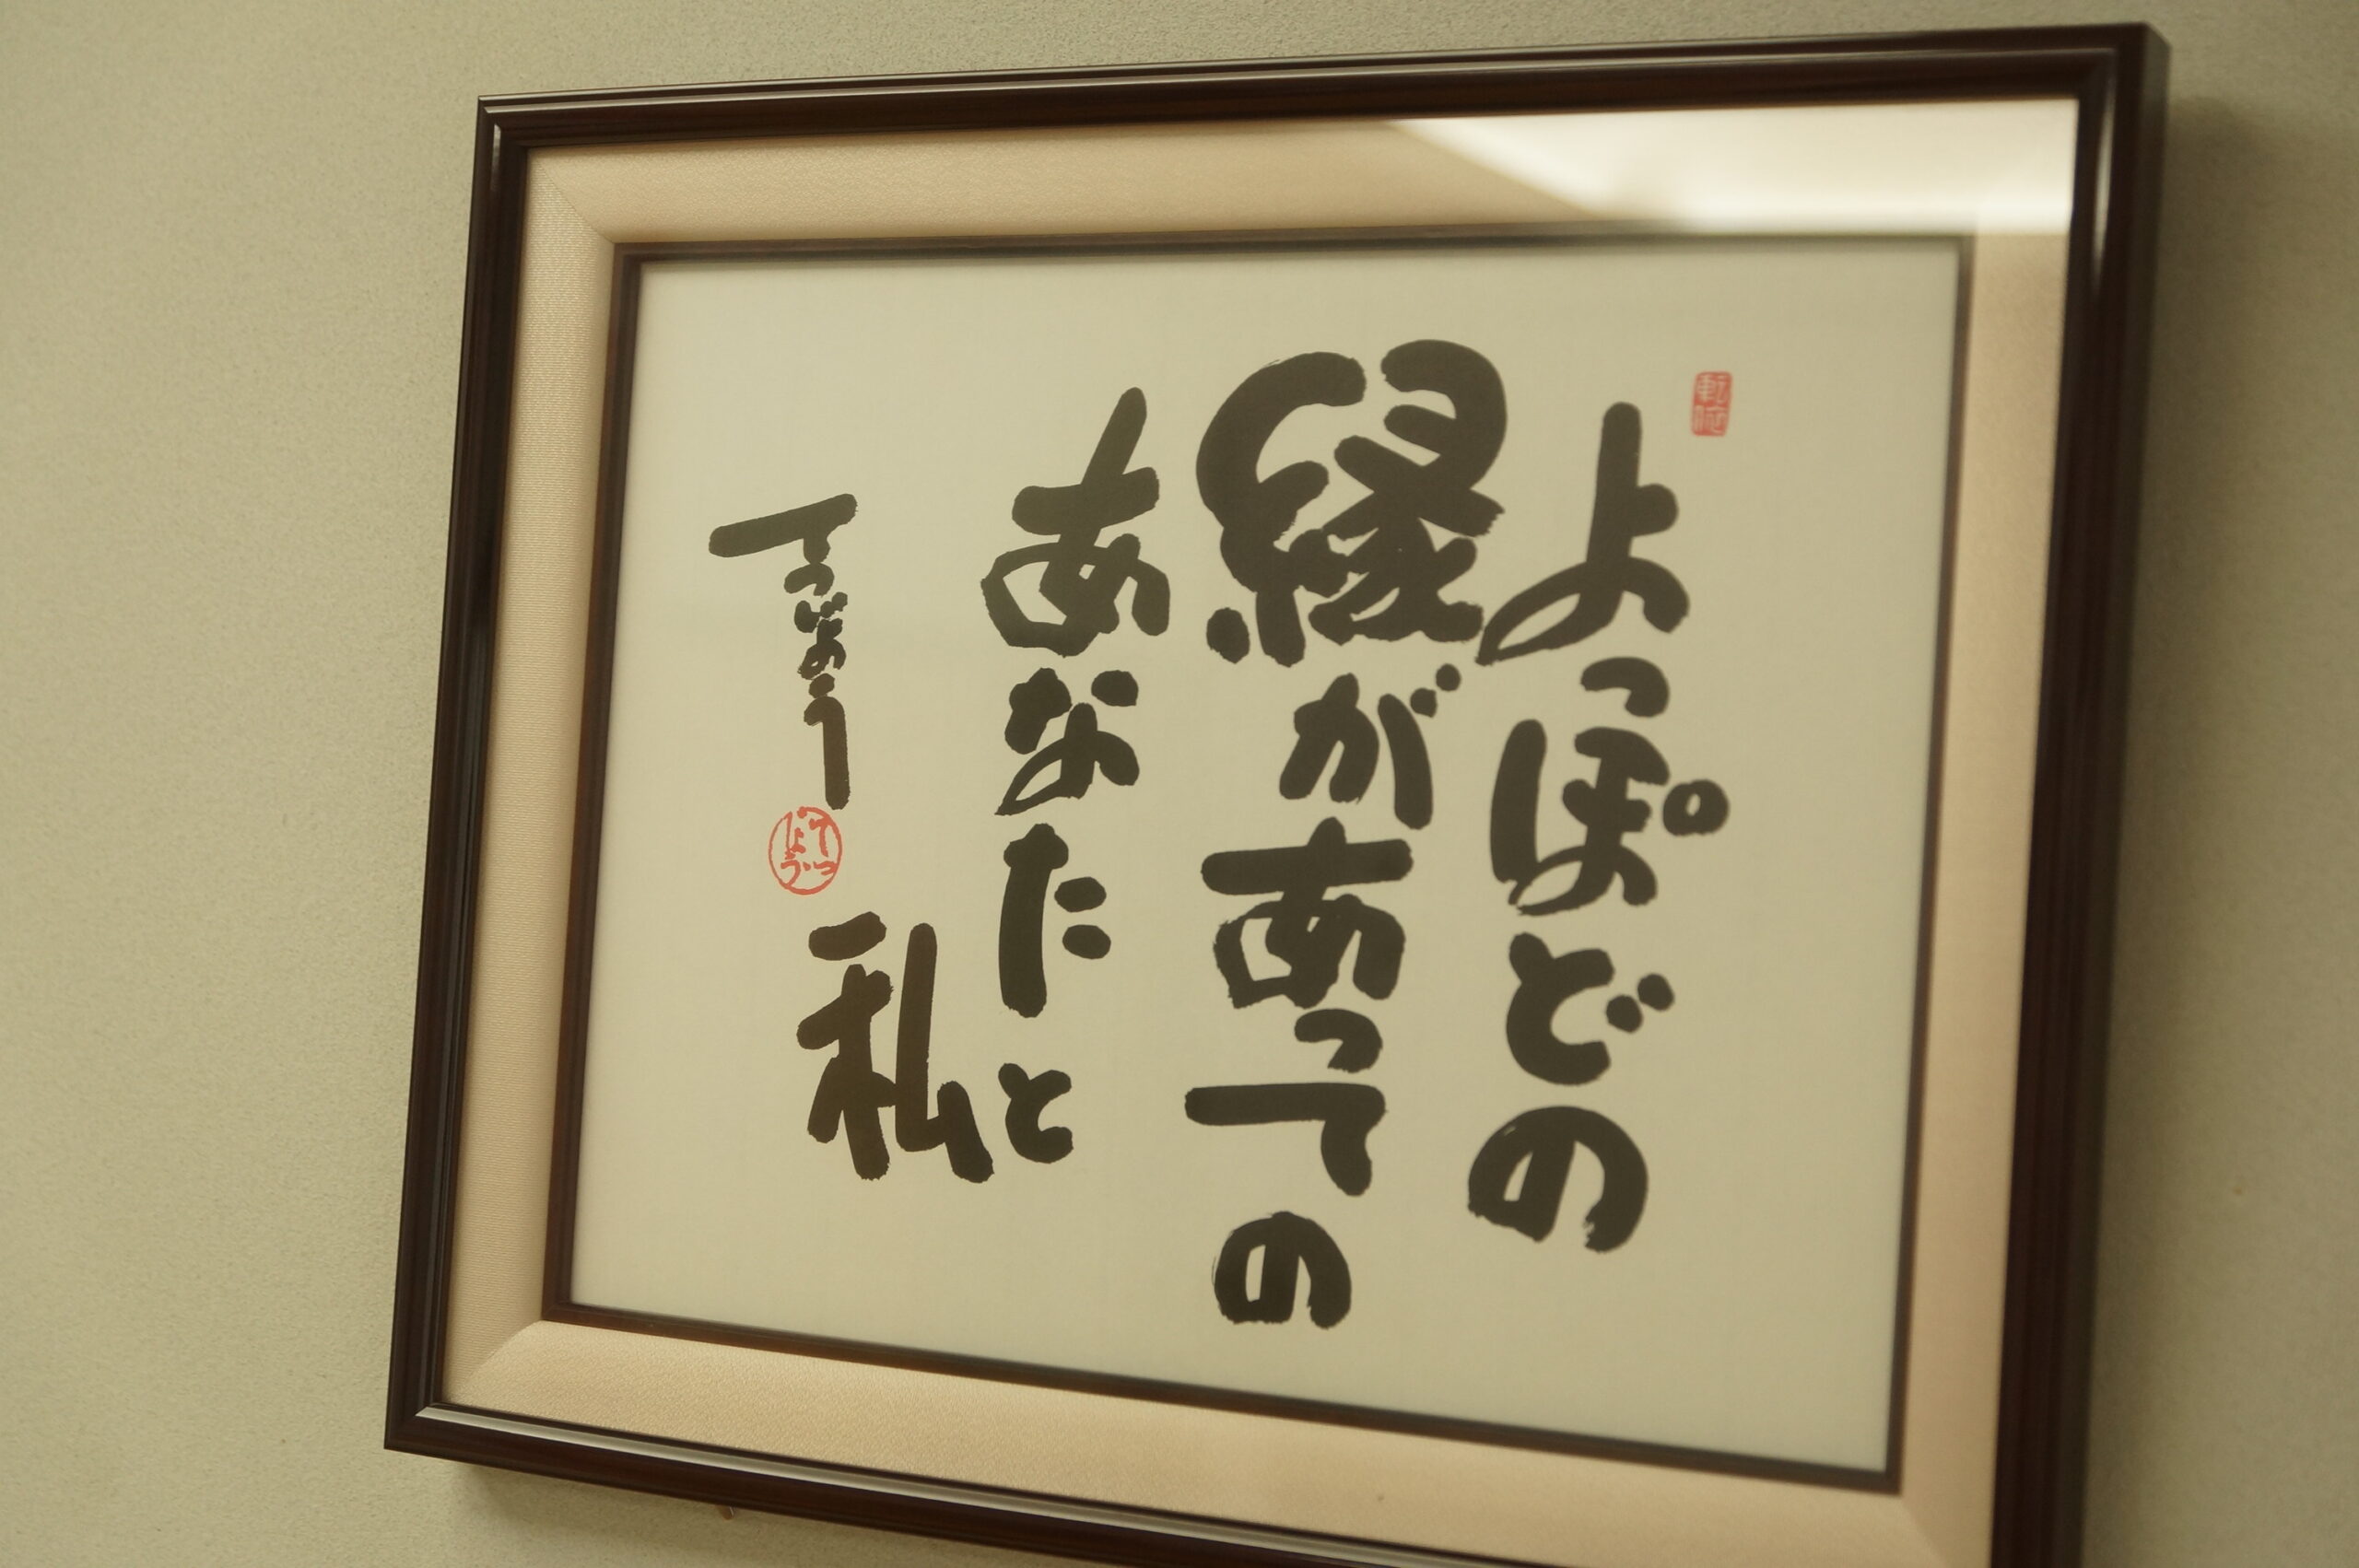 よっぽどの
縁があっての
あなたと
私
てつじょう
てつじょう